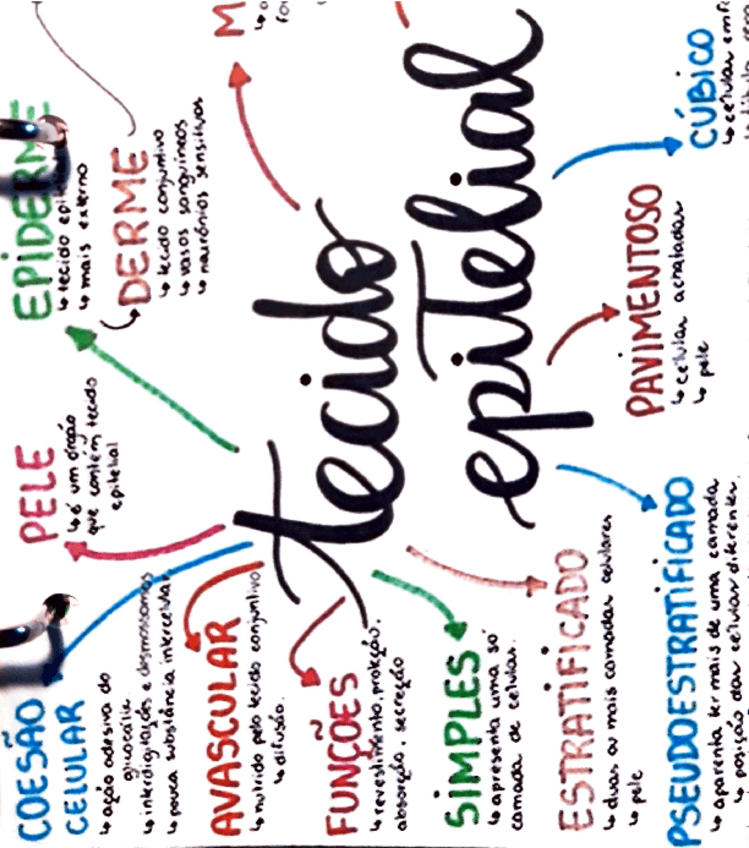 COESÃO
CELULAR
↳ ação adesiva do
glicocálix
↳ interdigitações e desmossomos
↳ pouca substância intercelular
AVASCULAR
↳ nutrido pelo tecido conjuntivo
↳ difusão.
FUNÇÕES
↳ revestimento, proteção,
absorção, secreção
SIMPLES
↳ apresenta uma só
camada de células.
ESTRATIFICADO
↳ duas ou mais camadas celulares
↳ pele
PSEUDOESTRATIFICADO
↳ aparenta ter mais de uma camada
↳ posição das células diferentes.
PELE
↳ é um órgão
que contém tecido
epitelial
tecido
epitelial
EPIDERME
↳ tecido
↳ mais externo
DERME
↳ tecido conjuntivo
↳ vasos sanguíneos
↳ neurônios sensitivos
PAVIMENTOSO
↳ células achatadas
↳ pele
M
CÚBICO
↳ células em